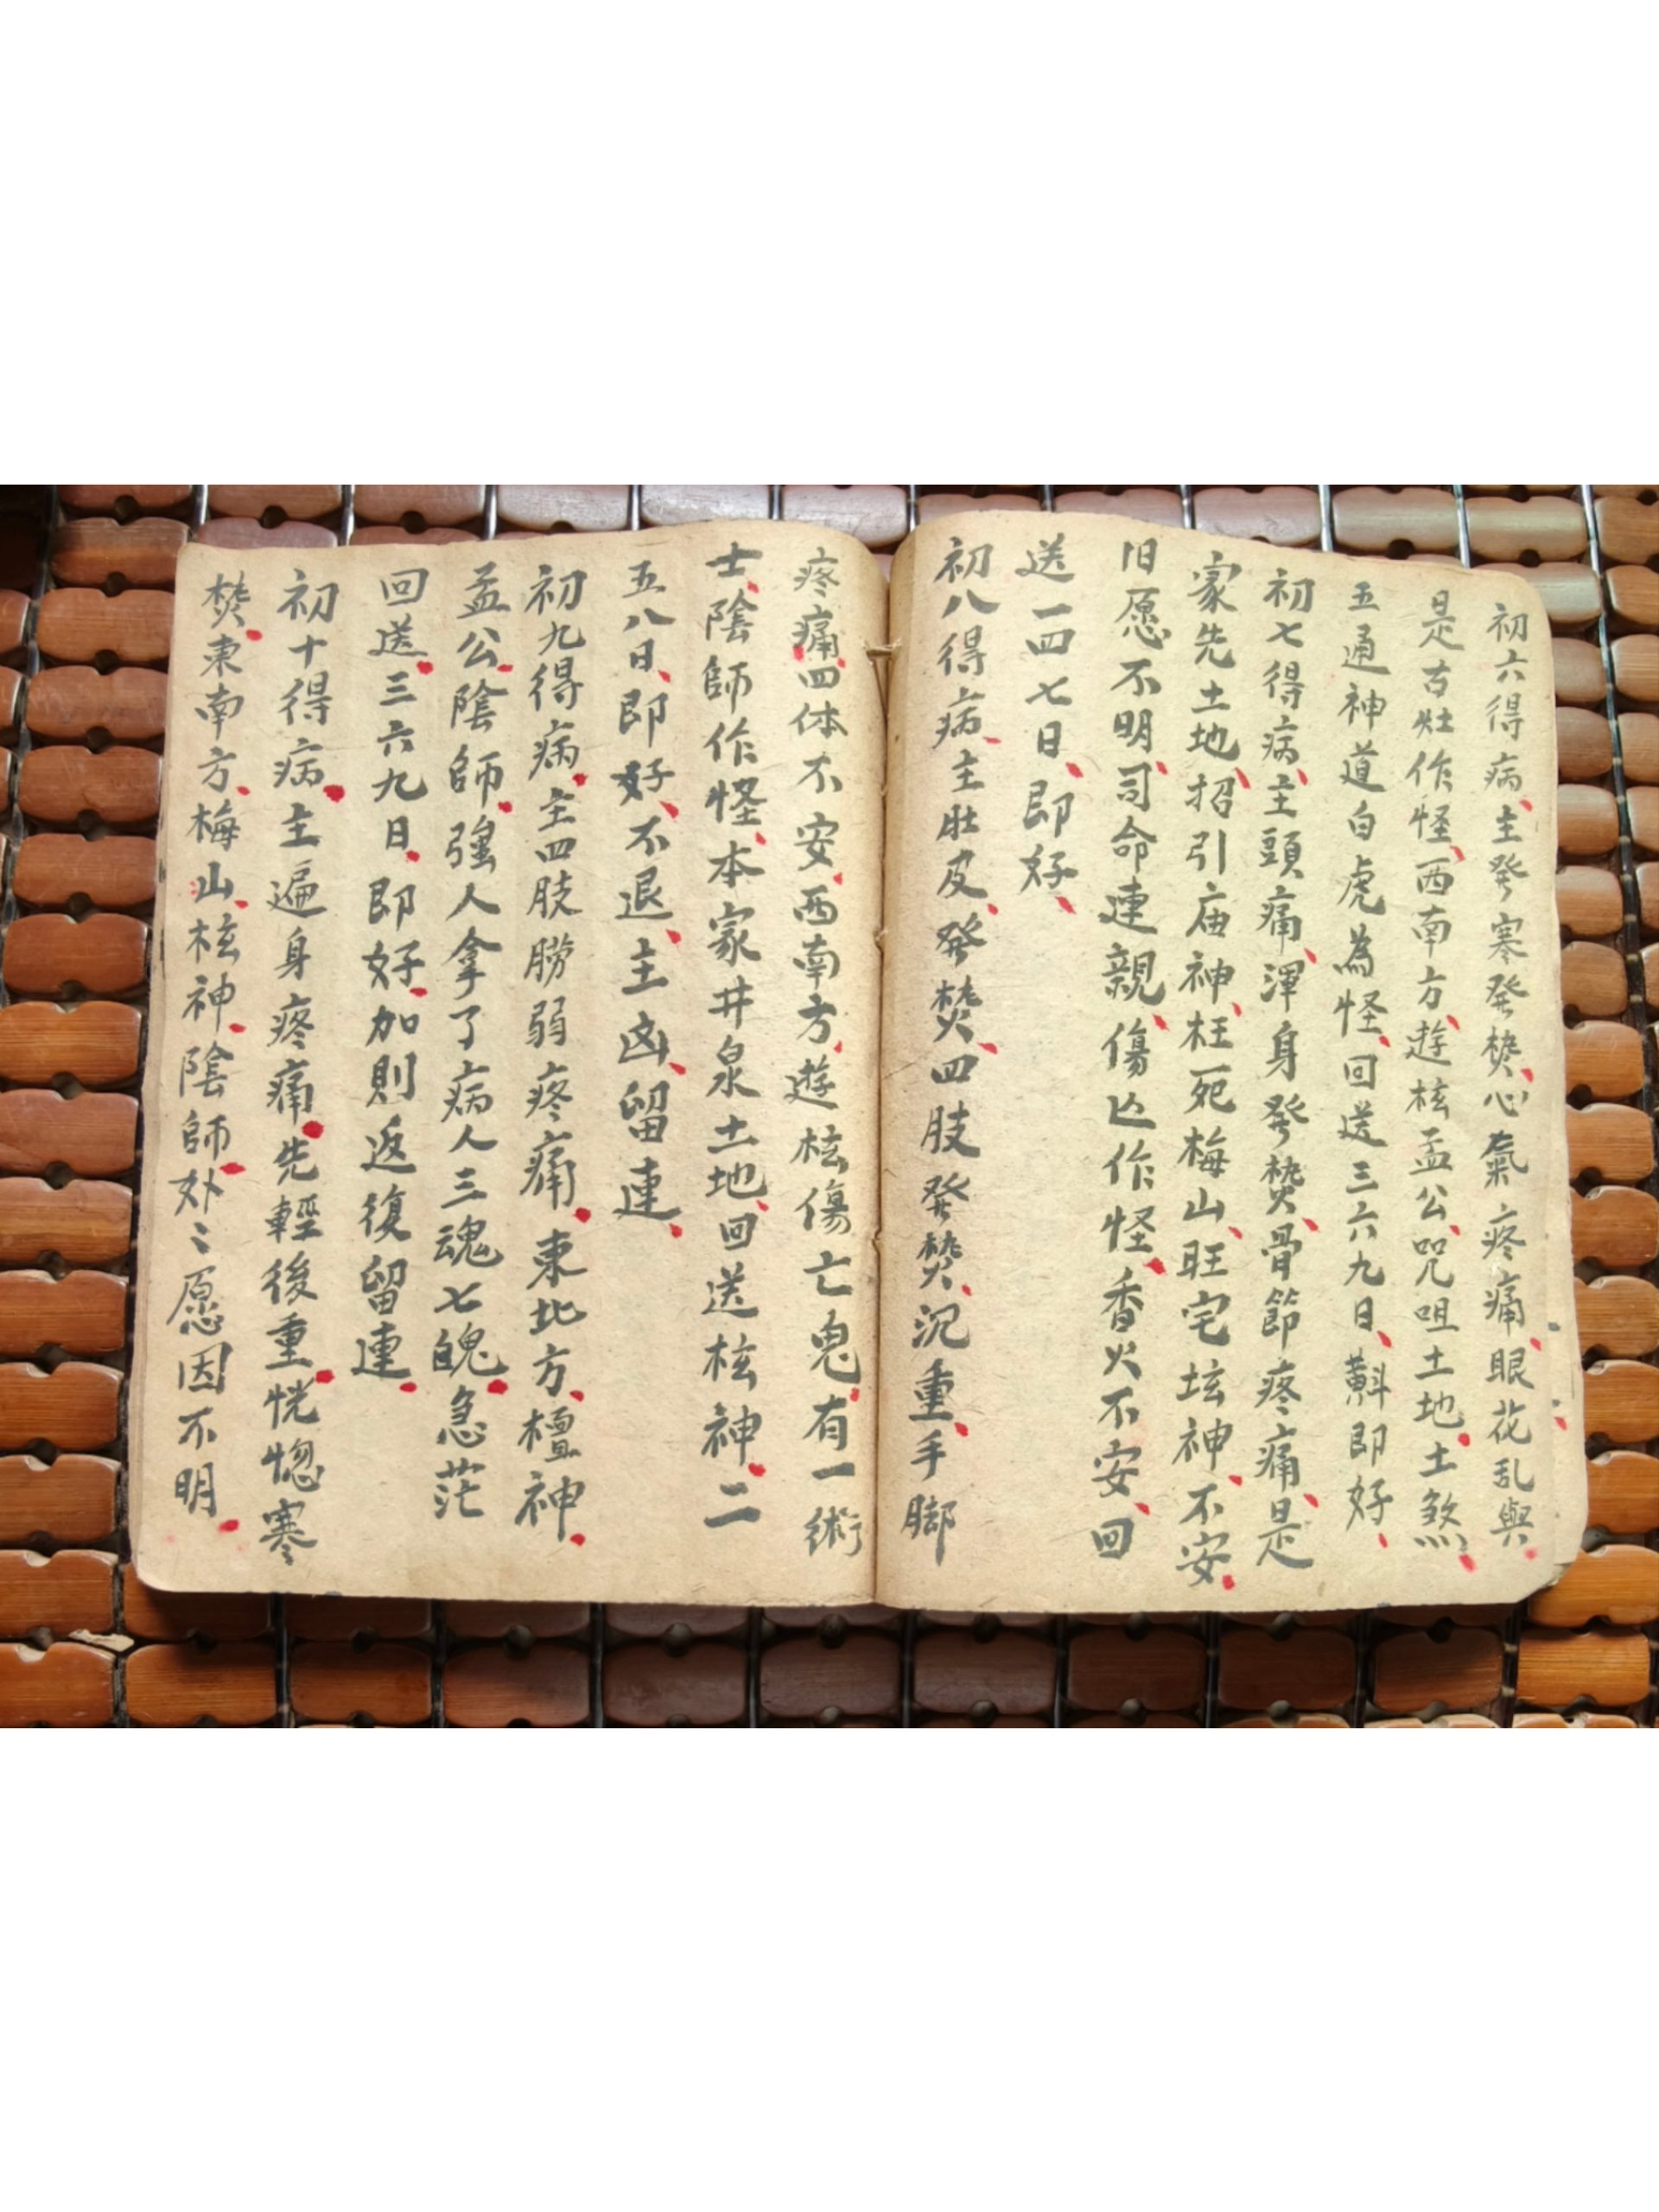 初六得病、主發寒發㷊、心氣疼痛、眼花乱與、
是古灶作怪、西南方、遊枟孟公、咒咀土地、土煞、
五通神道白虎為怪、回送三六九日、斢即好、
初七得病、主頭痛、渾身發㷊、骨節疼痛、是
家先土地、招引庙神、枉死梅山、旺宅坛神、不安、
旧愿不明、司命連親、傷亾作怪、香火不安、回
送一四七日、即好、
初八得病、主肚皮、發㷊、四肢發㷊、沉重、手脚
疼痛、四体不安、西南方、遊枟傷亡鬼、有一術
士、陰師作怪、本家井泉土地、回送枟神、二
五八日、即好、不退、主凶、留連、
初九得病、主四肢膀弱疼痛、東北方、檀神、
孟公、陰師、強人拿了病人三魂七魄、急茫
回送、三六九日、即好、加則返復留連、
初十得病、主遍身疼痛、先輕後重、恍惚寒
㷊、東南方、梅山、枟神、陰師、外〻愿因不明、